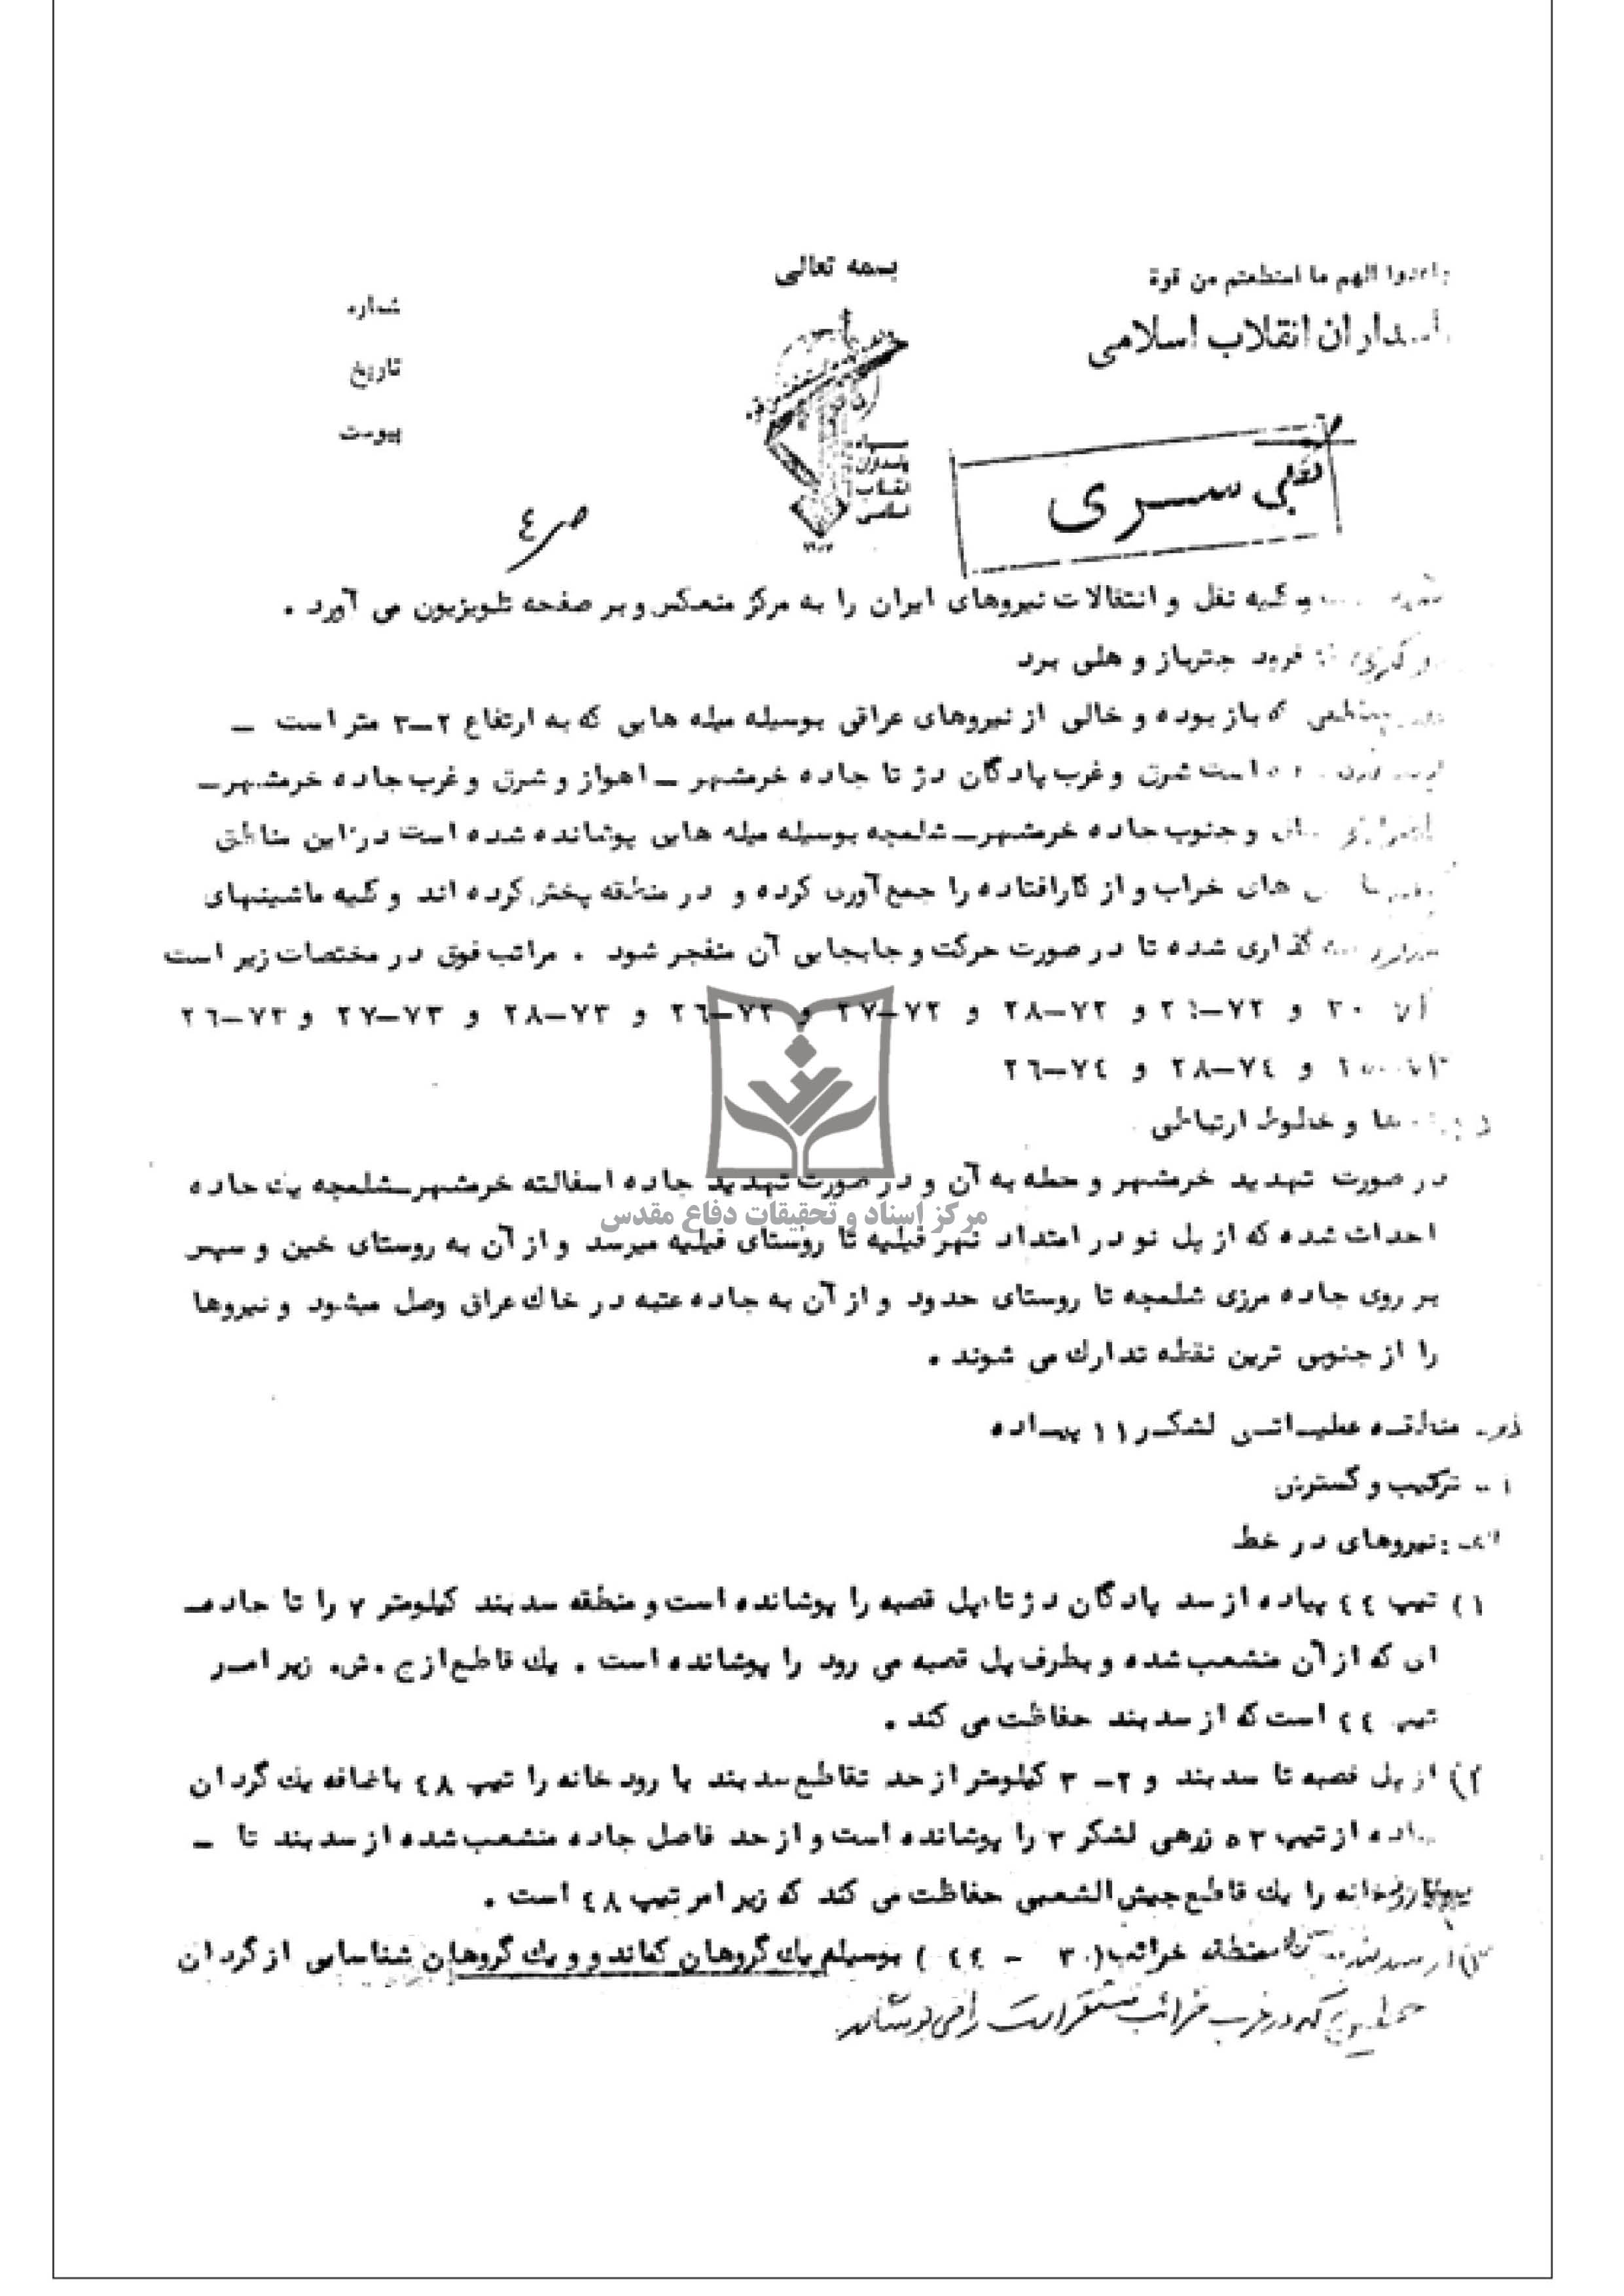 بسمه تعالی
واعدوا الهم ما استطعتم من قوة
پاسداران انقلاب اسلامی
شماره
تاریخ
پیوست
سپاه
پاسداران
انقلاب
اسلامی
سری
ص ٤
کلیه نقل و انتقالات نیروهای ایران را به مرکز منعکس و بر صفحه تلویزیون می آورد .
فرود چترباز و هلی برد
که باز بوده و خالی از نیروهای عراقی بوسیله میله هایی که به ارتفاع ۲ـ۳ متر است ـ
است شرق و غرب پادگان دژ تا جاده خرمشهر ـ اهواز و شرق و غرب جاده خرمشهر ـ
و جنوب جاده خرمشهر ـ شلمچه بوسیله میله هایی پوشانده شده است در این مناطق
های خراب و از کارافتاده را جمع آوری کرده و در منطقه پخش کرده اند و کلیه ماشینهای
گذاری شده تا در صورت حرکت و جابجایی آن منفجر شود . مراتب فوق در مختصات زیر است
۳۰ و ۷۲ـ و ۷۲ـ۲۸ و ۷۲ـ۲۷ و ۷۲ـ۲٦ و ۷۳ـ۲۸ و ۷۳ـ۲۷ و ۷۳ـ۲٦
و ۷٤ـ۲۸ و ۷٤ـ۲٦
و خطوط ارتباطی
در صورت تهدید خرمشهر و حمله به آن و در صورت تهدید جاده اسفالته خرمشهر ـ شلمچه یك جاده
مرکز اسناد و تحقیقات دفاع مقدس
احداث شده که از پل نو در امتداد نهر فیلیه تا روستای فیلیه میرسد و از آن به روستای خین و سپس
بر روی جاده مرزی شلمچه تا روستای حدود و از آن به جاده عتبه در خاك عراق وصل میشود و نیروها
را از جنوبی ترین نقطه تدارك می شوند .
منطقه عملیاتی لشکر ۱۱ پیاده
ترکیب و گسترش
نیروهای در خط
۱) تیپ ٤٤ پیاده از سد پادگان دژ تا پل قصبه را پوشانده است و منطقه سد بند کیلومتر ۷ را تا جاده ـ
ای که از آن منشعب شده و بطرف پل قصبه می رود را پوشانده است . یك قاطع از ج . ش . زیر امر
تیپ ٤٤ است که از سد بند حفاظت می کند .
۲) از پل قصبه تا سد بند و ۲ـ ۳ کیلومتر از حد تقاطع سد بند با رودخانه را تیپ ٤۸ باضافه یك گردان
پیاده از تیپ ۵۳ زرهی لشکر ۳ را پوشانده است و از حد فاصل جاده منشعب شده از سد بند تا ـ
رودخانه را یك قاطع جیش الشعبی حفاظت می کند که زیر امر تیپ ٤۸ است .
منطقه خرائب (۳۰ - ٤٤) بوسیله یك گروهان کماندو و یك گروهان شناسایی از گردان
که در غرب خرائب مستقر است را می پوشاند.